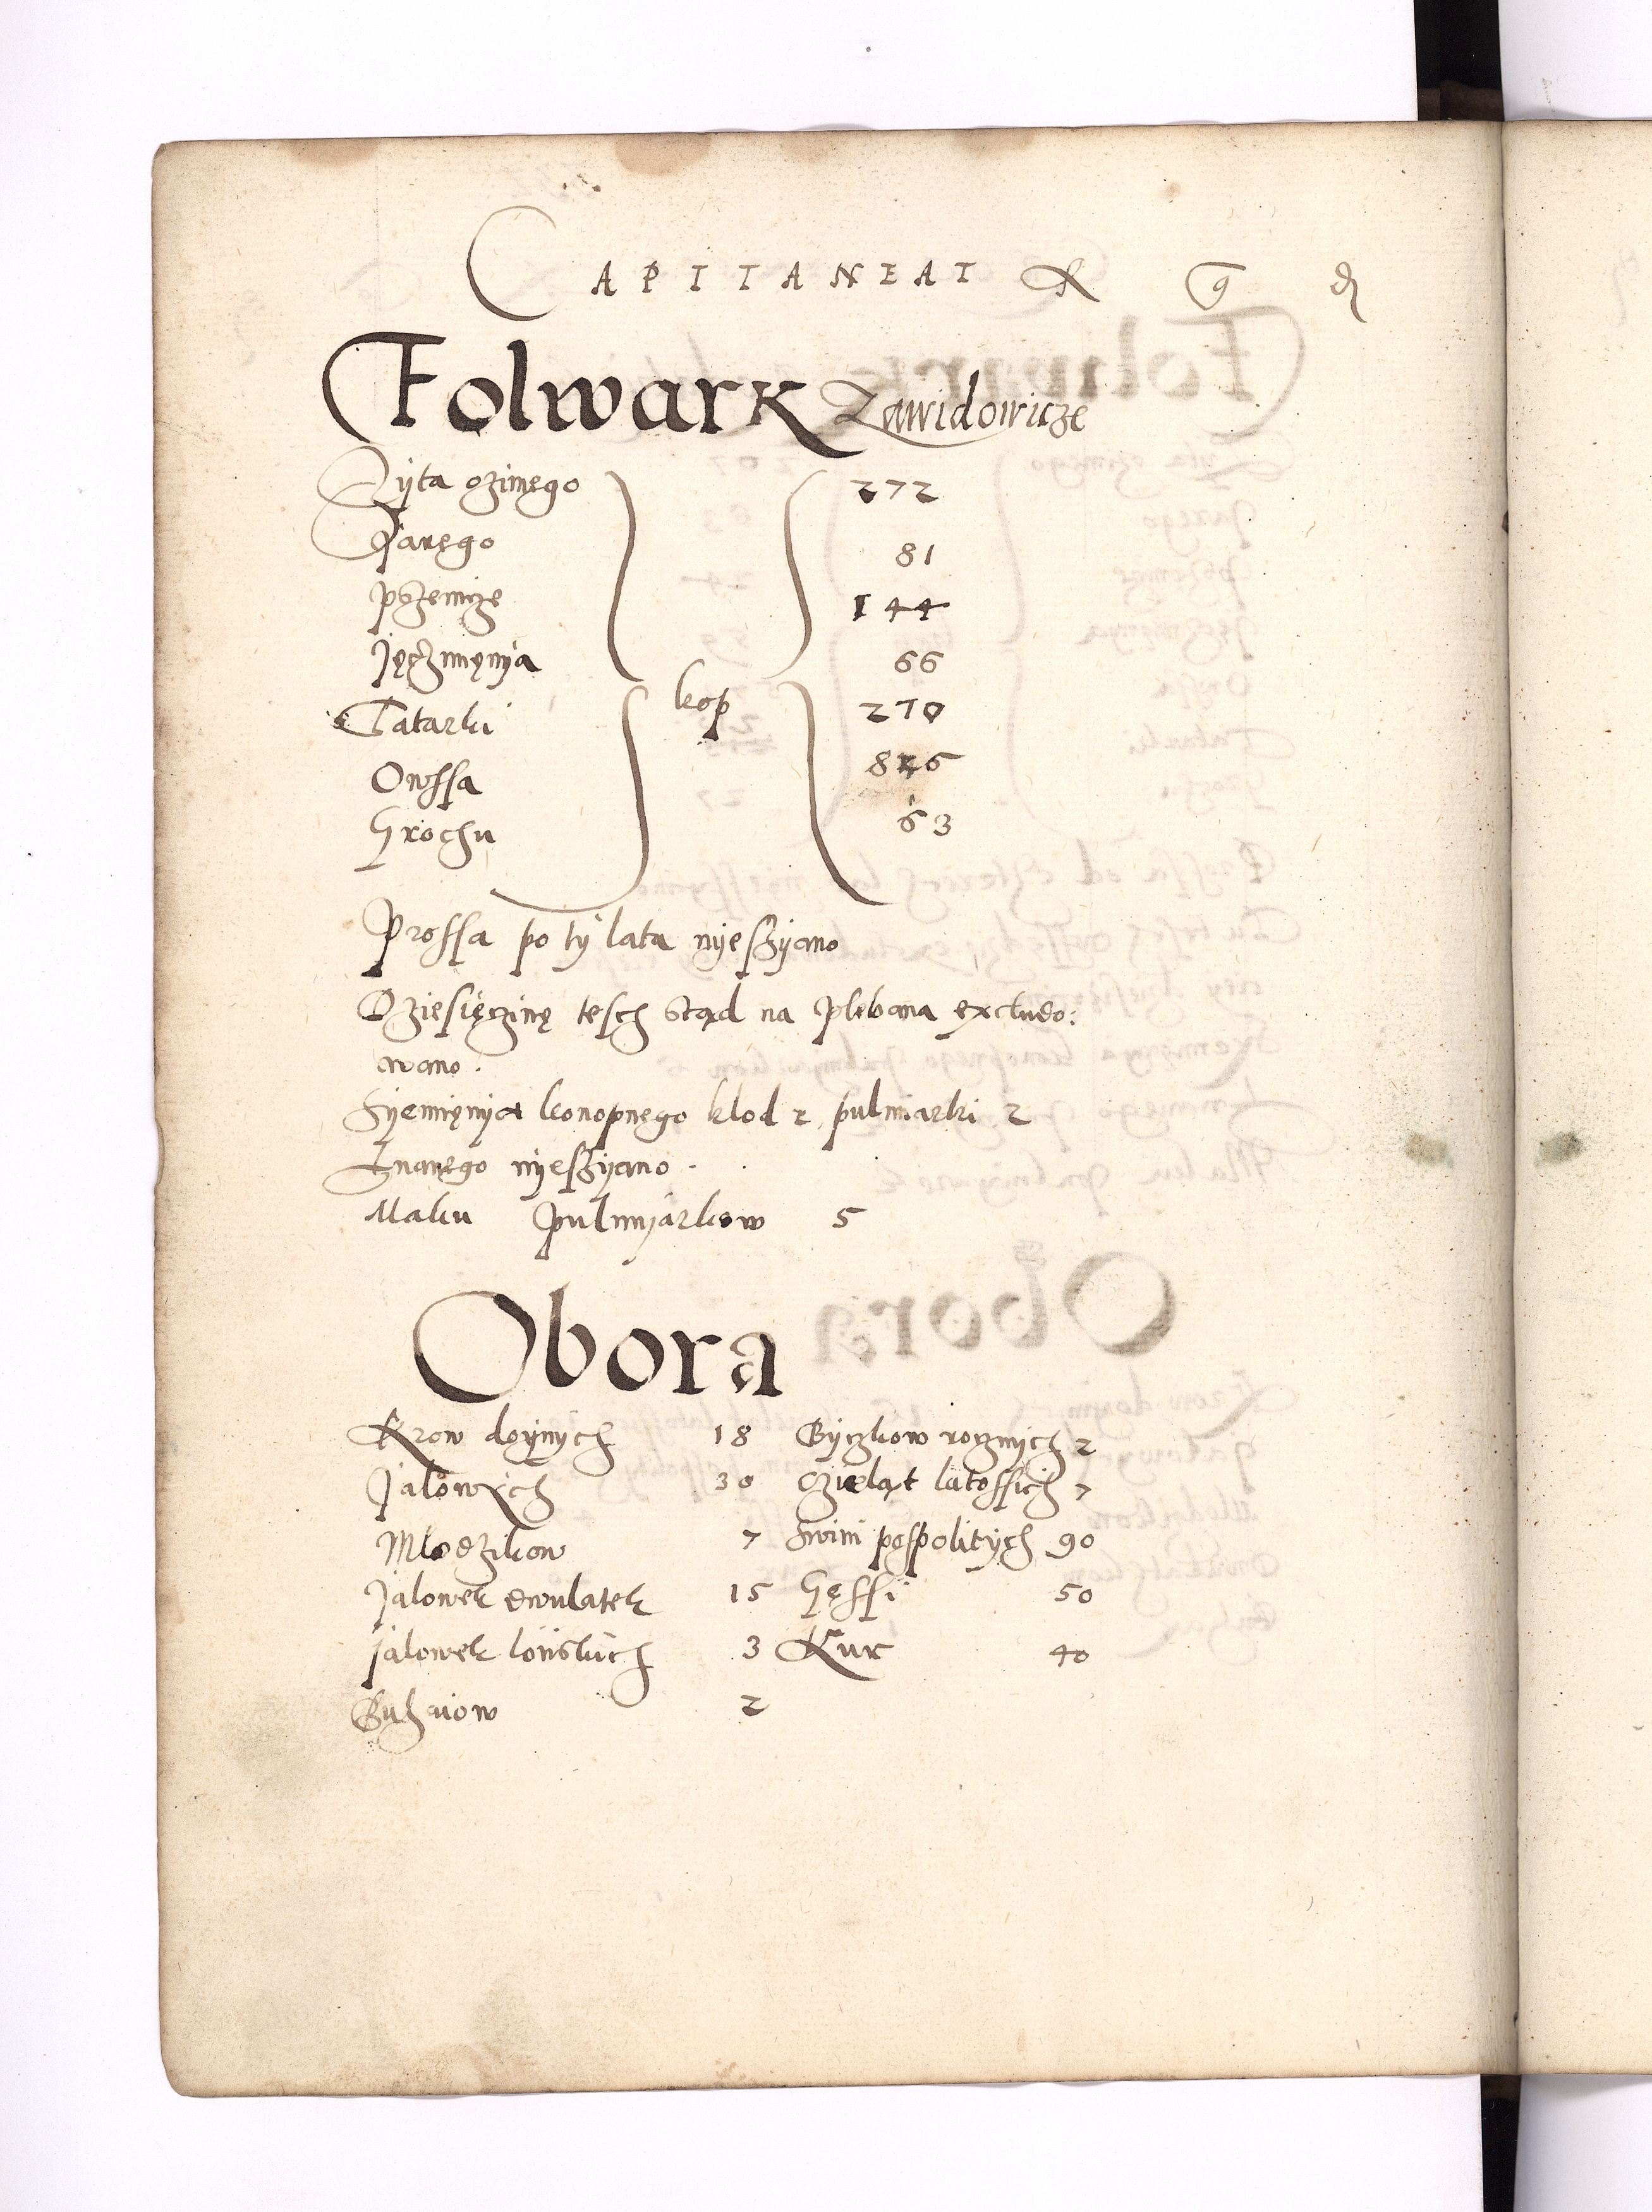 CAPITANEAT
Folwark Zawidowicze
Zyta ozimego 272
Jarego 81
pszenicze 144
Jęczmęnya 66
kop
Tatarki 270
Owssa 826
Grochu 63
Prossa po ty lata nyeszyano
Dziesięczinę tesch stąd na plebana excludo:
wano.
Syemięnya konopnego klod 2 pulmiarki 2
Lnanego nyeszyano.
Maku pulmyarkow 5
Obora
Krow doynych 18 Byczkow rocznych 2
Jalowych 30 Czieląt latossich 7
Mlodzikow 7 Swini pospolitych 90
Jalowek dwulatek 15 Gęssi 50
Jalowek lonskich 3 Kur 40
Buhaiow 2